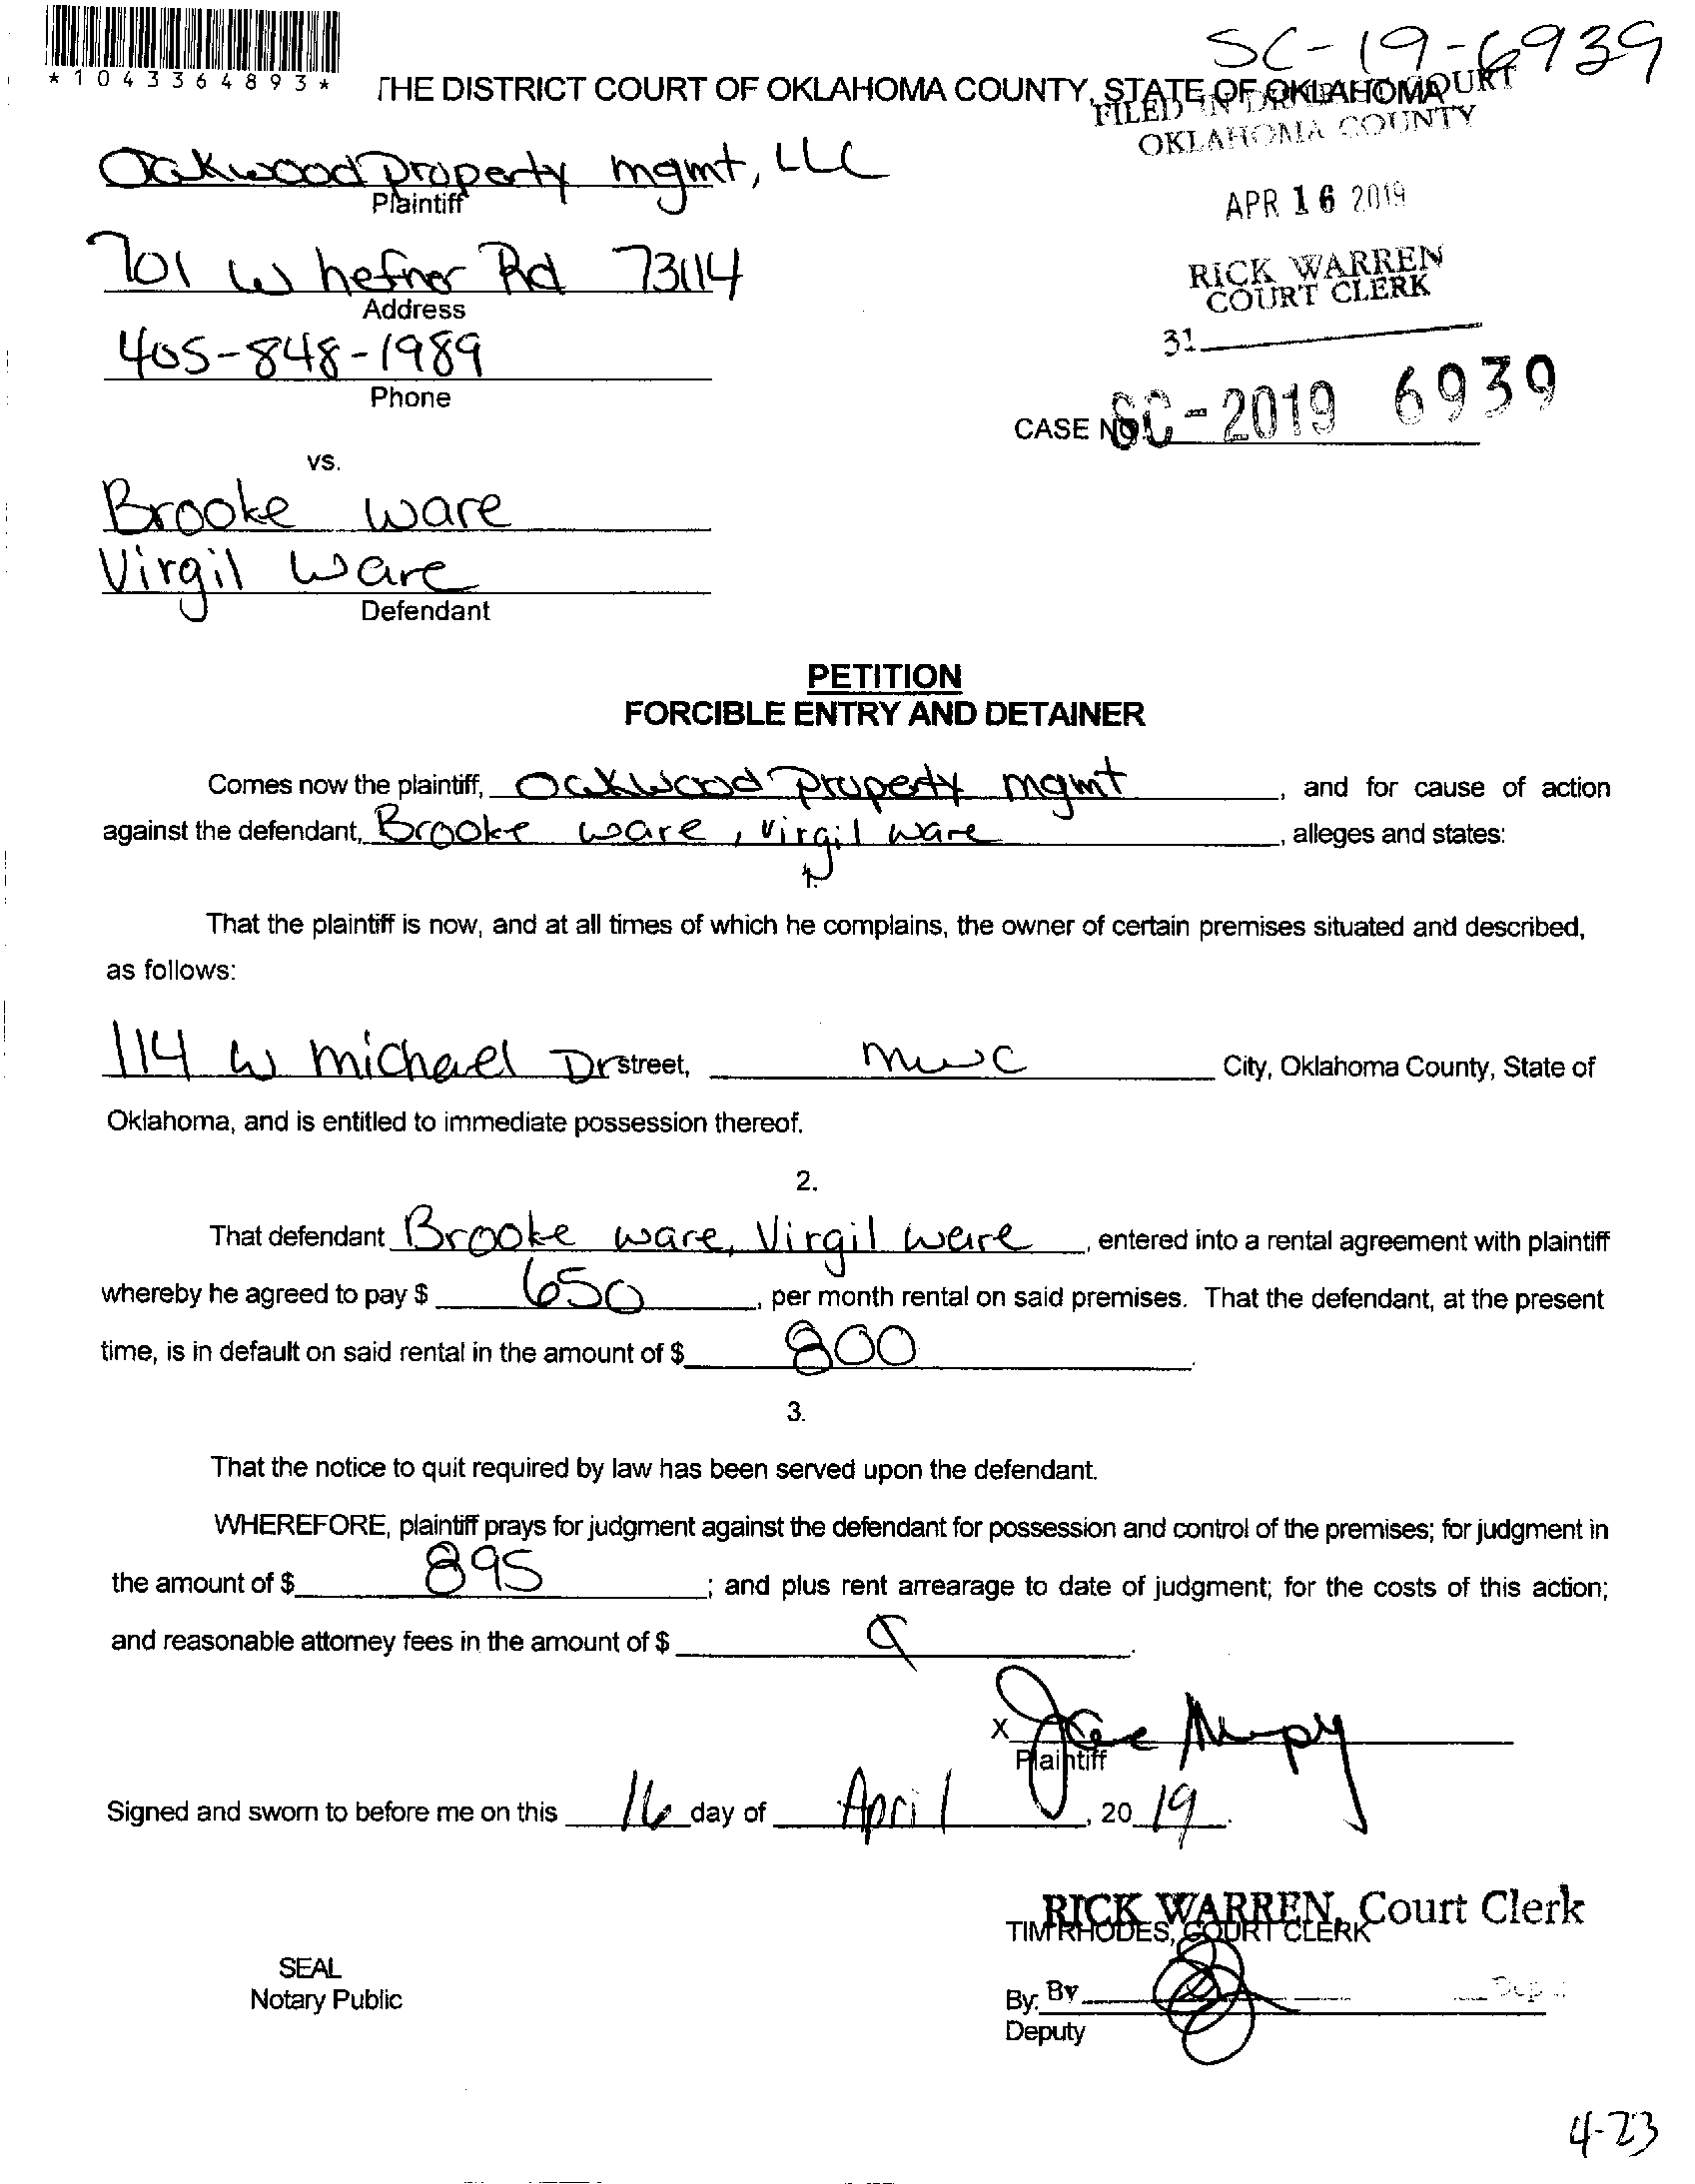 *1043364893*
SC-19-6939
THE DISTRICT COURT OF OKLAHOMA COUNTY, STATE OF OKLAHOMA
FILED IN DISTRICT COURT
OKLAHOMA COUNTY
Oakwood property mgmt, LLC
Plaintiff
APR 16 2019
701 W hefner Rd 73114
Address
RICK WARREN
COURT CLERK
405-848-1989
Phone
31
CASE NO. SC-2019 6939
vs.
Brooke ware
Virgil Ware
Defendant
PETITION
FORCIBLE ENTRY AND DETAINER
Comes now the plaintiff, Oakwood property mgmt, and for cause of action
against the defendant, Brooke ware, virgil ware, alleges and states:
1.
That the plaintiff is now, and at all times of which he complains, the owner of certain premises situated and described,
as follows:
114 W michael Dr street, mwc City, Oklahoma County, State of
Oklahoma, and is entitled to immediate possession thereof.
2.
That defendant Brooke ware, Virgil ware, entered into a rental agreement with plaintiff
whereby he agreed to pay $ 650, per month rental on said premises. That the defendant, at the present
time, is in default on said rental in the amount of $ 800.
3.
That the notice to quit required by law has been served upon the defendant.
WHEREFORE, plaintiff prays for judgment against the defendant for possession and control of the premises; for judgment in
the amount of $ 895; and plus rent arrearage to date of judgment; for the costs of this action;
and reasonable attorney fees in the amount of $
X
Plaintiff
Signed and sworn to before me on this 16 day of April, 2019.
RICK WARREN, Court Clerk
TIM RHODES, COURT CLERK
SEAL
Notary Public
By: By
Deputy
4-23